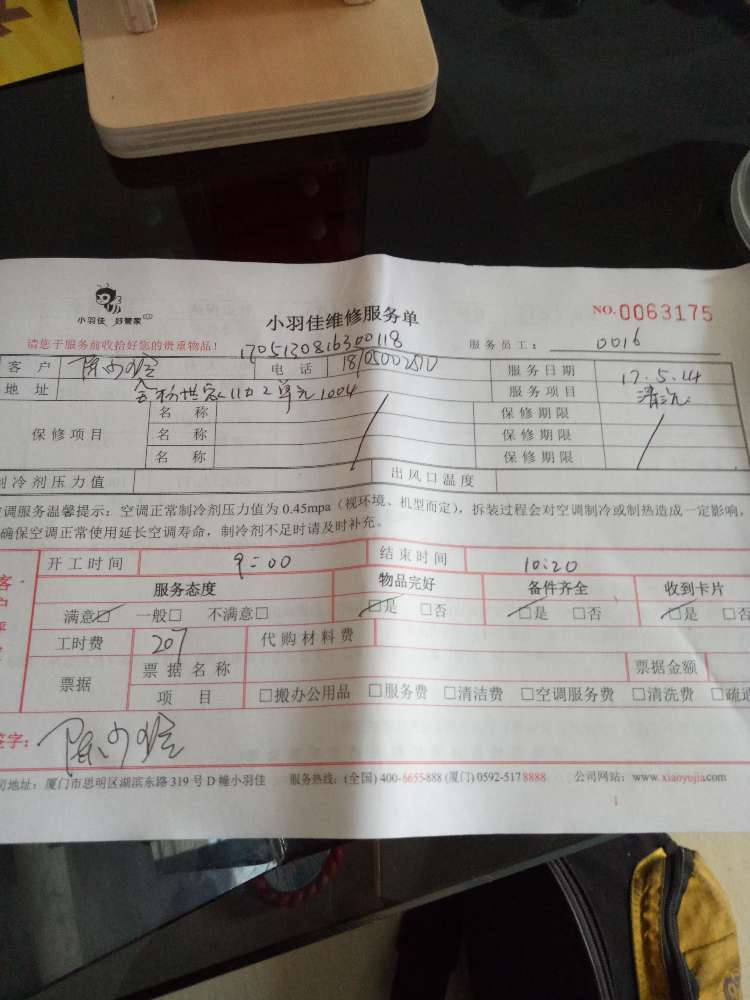 小羽佳 好管家
小羽佳维修服务单
NO.0063175
请您于服务前收拾好您的贵重物品!
1705130816300118
服务员工: 0016
客 户 电 话 服务日期 17.5.14
地 址 11 2单元1004 服务项目 清洗
保修项目 名 称 保修期限
名 称 保修期限
名 称 保修期限
制冷剂压力值 出风口温度
调服务温馨提示:空调正常制冷剂压力值为0.45mpa(视环境、机型而定),拆装过程会对空调制冷或制热造成一定影响,
确保空调正常使用延长空调寿命,制冷剂不足时请及时补充。
开工时间 9:00 结束时间 10:20
服务态度 物品完好 备件齐全 收到卡片
满意□ 一般□ 不满意□ □是 □否 □是 □否 □是 □否
工时费 207 代购材料费
票据 票据名称 票据金额
项 目 □搬办公用品 □服务费 □清洁费 □空调服务费 □清洗费 □疏通
签字:
司地址:厦门市思明区湖滨东路319号D幢小羽佳 服务热线:(全国)400-6655-888 (厦门)0592-5178888 公司网站:www.xiaoyujia.com
1